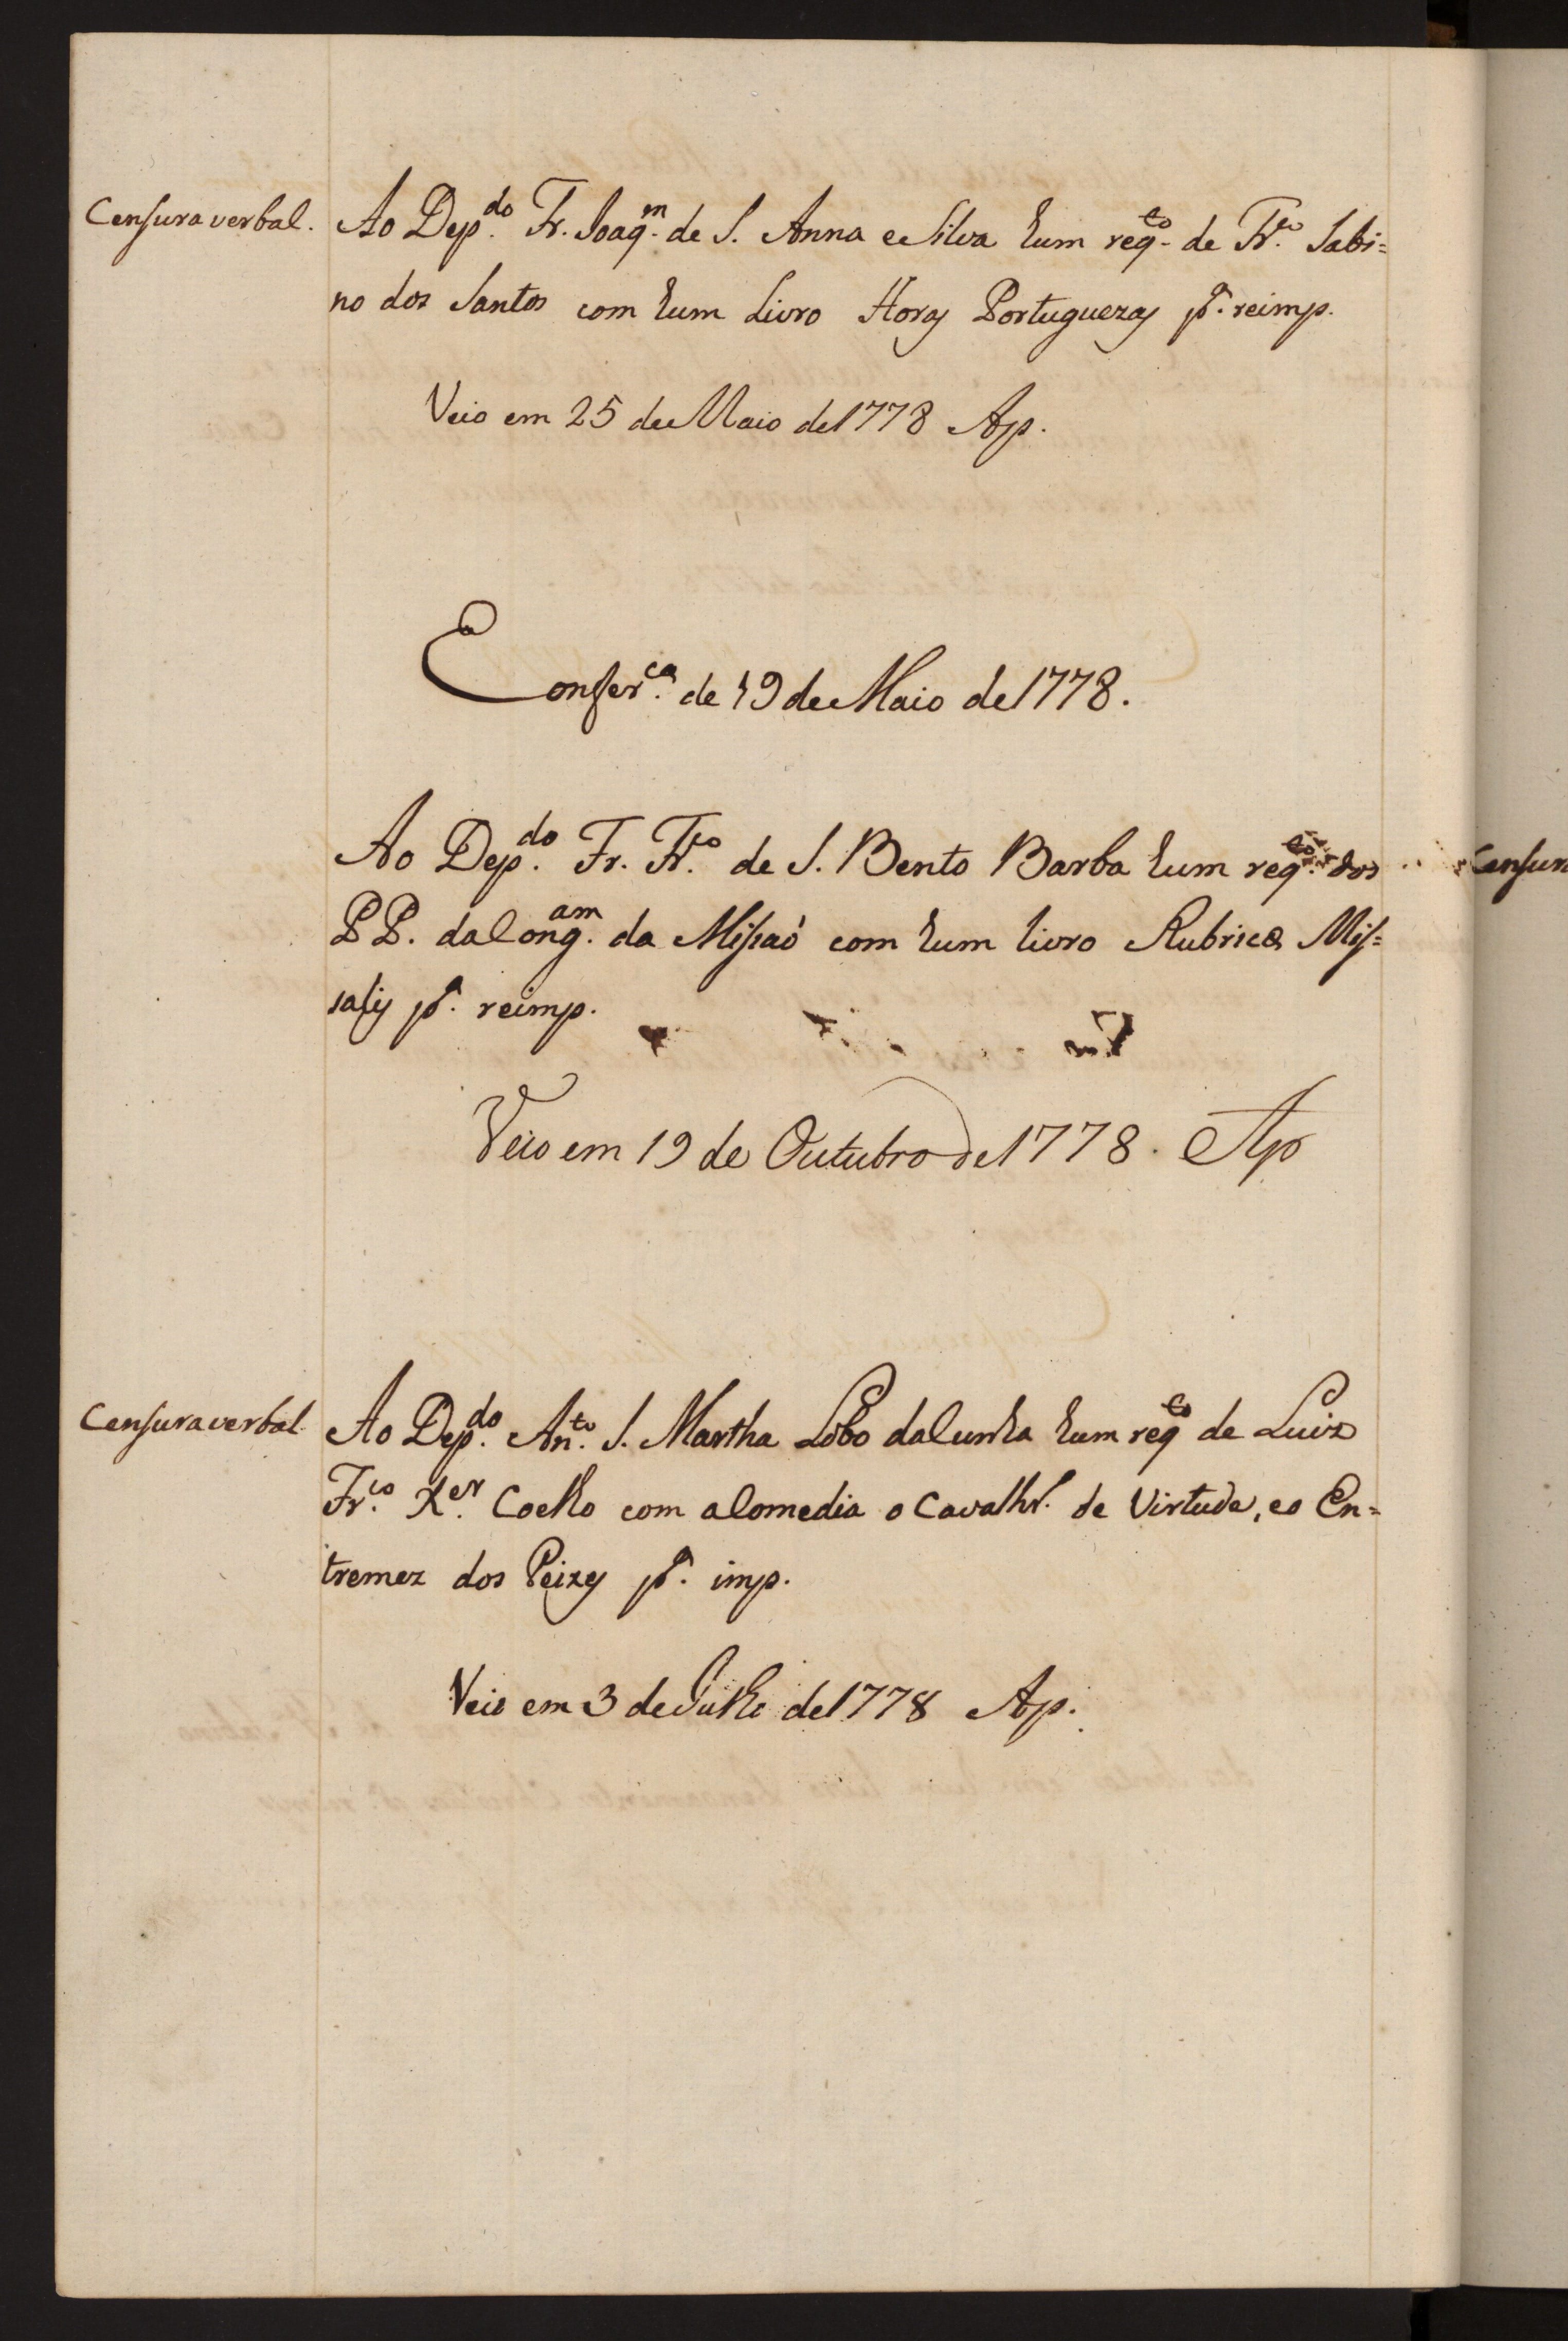 Censura verbal. Ao Dep.do Fr. Joaq.m de S. Anna e Silva hum req.to de Fr.co Sabi=
no dos Santos com hum Livro Horas Portuguezas p.a reimp.
Veio em 25 de Maio de 1778 Ap.
Confer.ca de 19 de Maio de 1778.
Ao Dep.do Fr. Fr.co de S. Bento Barba hum req.to dos
PP. da Cong.am da Missaõ com hum livro Rubricæ Mis=
salis p.a reimp.
Veio em 19 de Outubro de 1778. Ap
Censura verbal Ao Dep.do An.to S. Martha Lobo da Cunha hum req.to de Luiz
Fr.co X.er Coelho com a Comedia o Cavalhr.o de Virtude, e o En=
tremez dos Peixes p.a imp.
Veio em 3 de Julho de 1778 Ap.
Censur